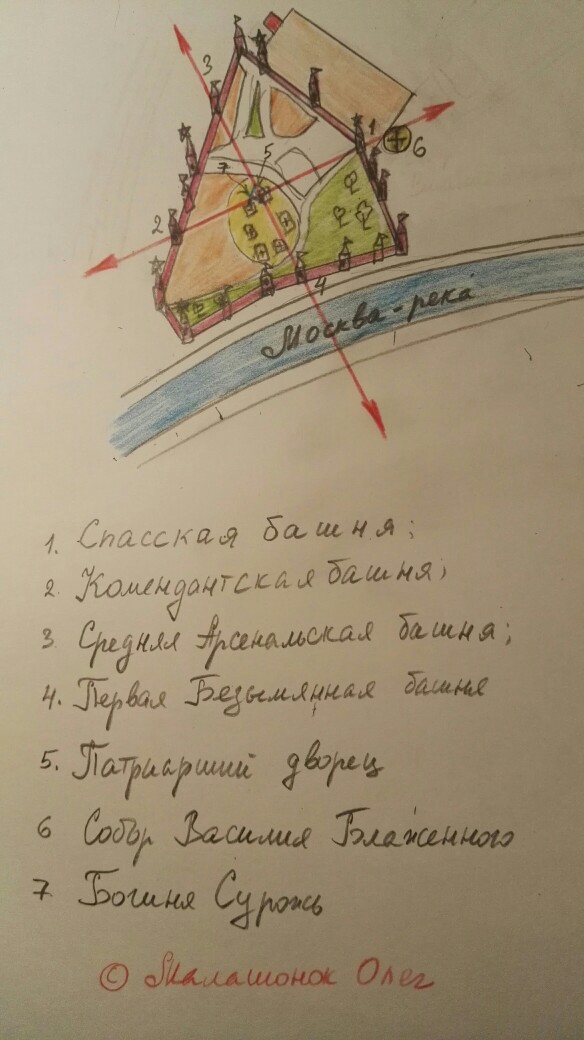 3
1
6
5
7
2
4
Москва-река
1. Спасская башня;
2. Комендантская башня;
3 Средняя Арсенальская башня;
4. Первая Безымянная башня
5. Патриарший дворец
6 Собор Василия Блаженного
7 Богиня Сурожь
© Олег